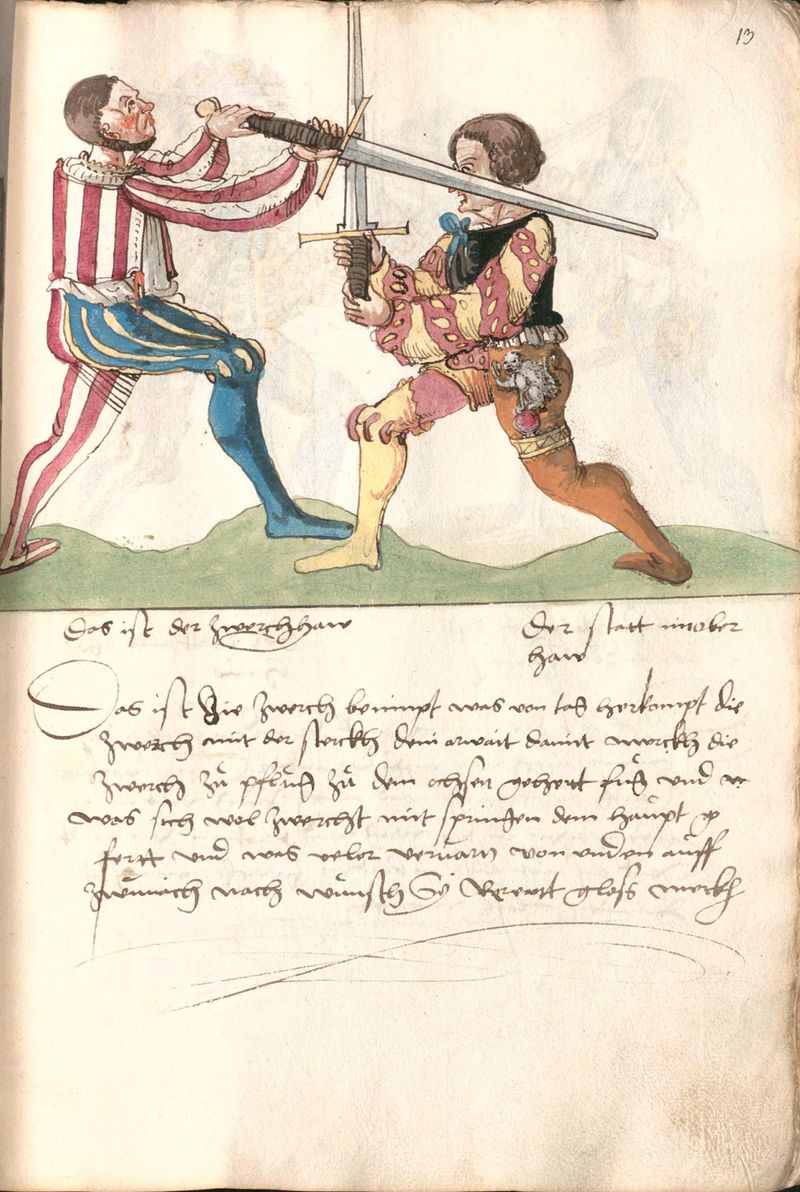 13
Das ist der zwerchhaw
Der statt im ober
haw
Das ist Die zwerch benimpt was von tag herkompt die
zwerch mit der sterckh dein arwait damit merckh die
zwerch zů pflůg zů dem ochsen gehertt fůg und
was sich wol zwercht mit springen dem haupt
fertt und was veler von unden auff
nach wůnsch Sy gloss merckh